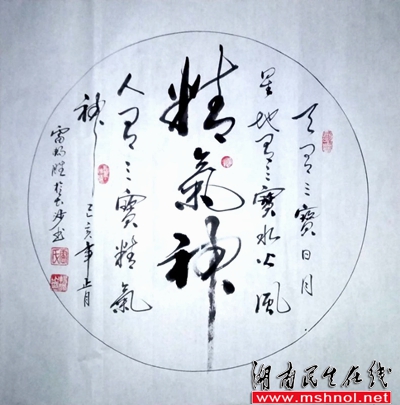 天有三寶日月
星地有三寶水火風
精氣神
人有三寶精氣
神
己亥年正月
於長沙
湖南民生在线
www.mshnol.net